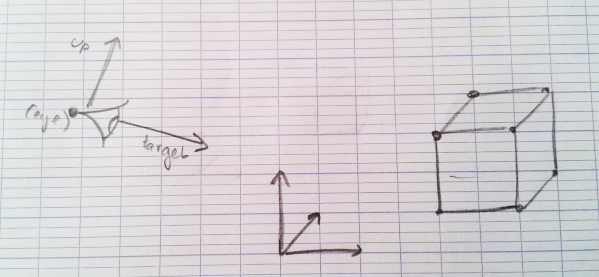 up
(eye)
target